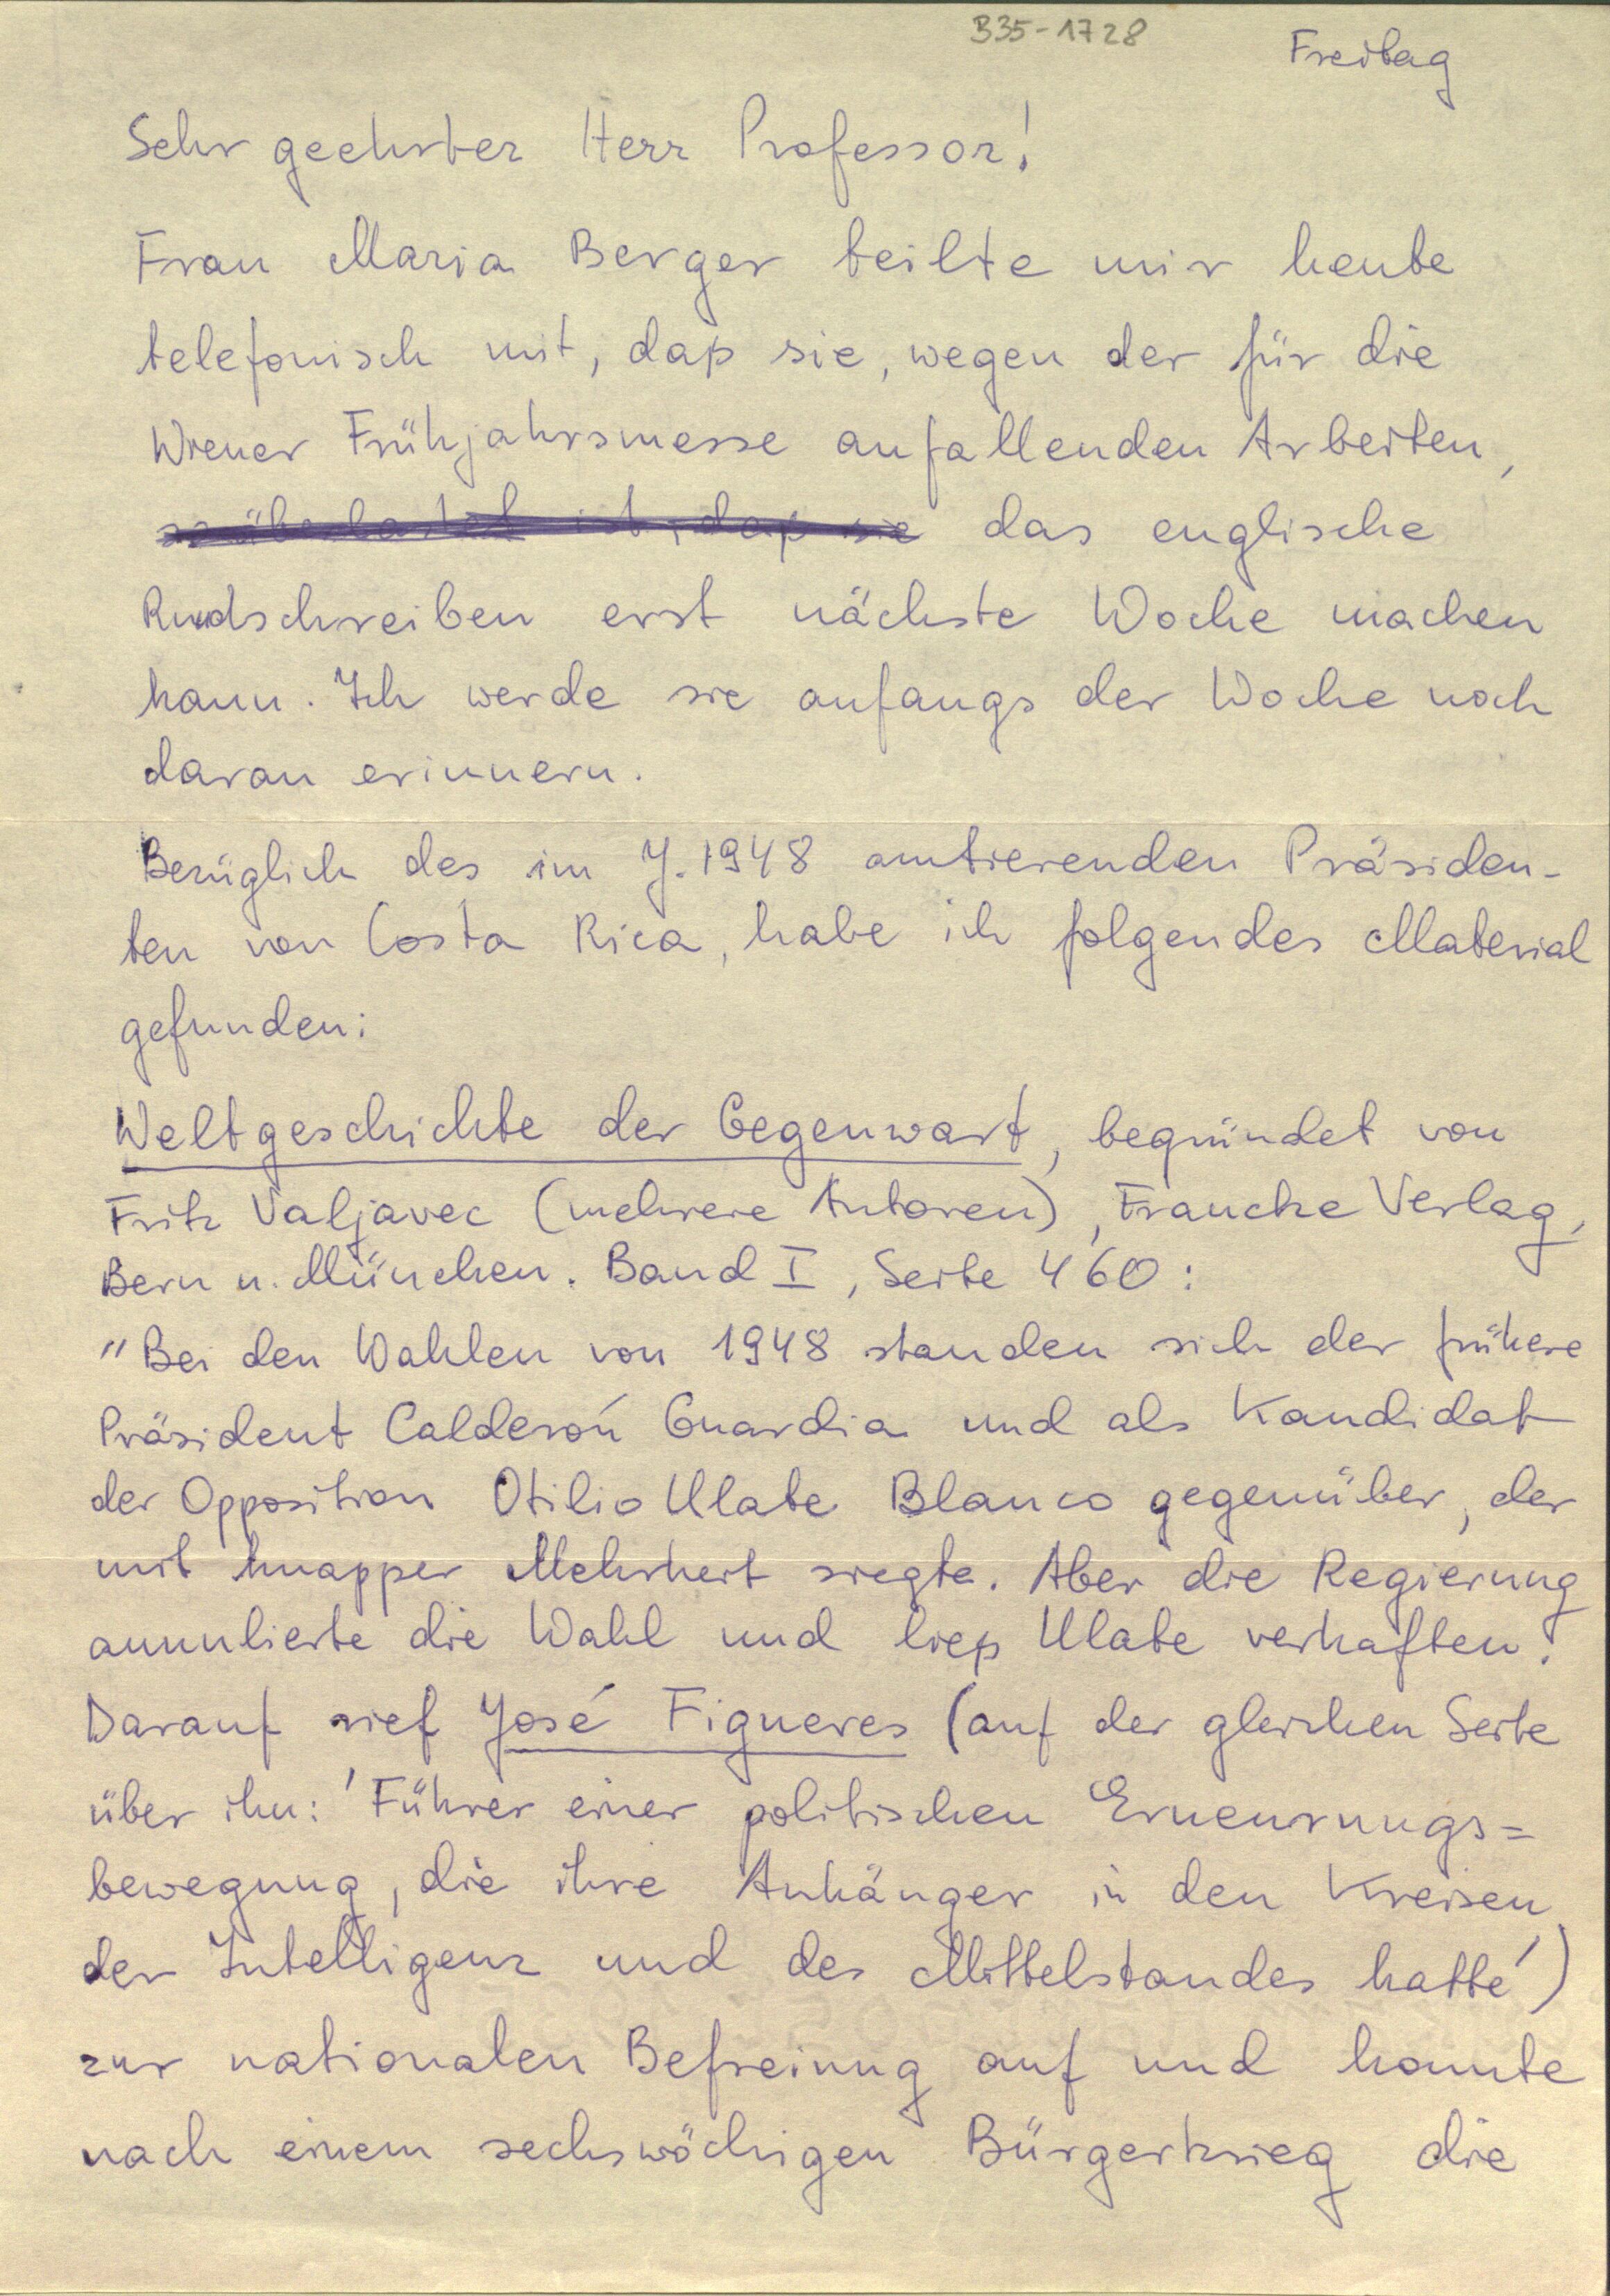 B35-1728
Freitag
Sehr geehrter Herr Professor!
Frau Maria Berger teilte mir heute
telefonisch mit, daß sie, wegen der für die
Wiener Frühjahrsmesse anfallenden Arbeiten,
so überlastet ist, daß sie das englische
Rundschreiben erst nächste Woche machen
kann. Ich werde sie anfangs der Woche noch
daran erinnern.
Bezüglich des im J. 1948 amtierenden Präsiden-
ten von Costa Rica, habe ich folgendes Material
gefunden:
Weltgeschichte der Gegenwart, begründet von
Fritz Valjavec (mehrere Autoren), Francke Verlag,
Bern u. München. Band I, Seite 460:
"Bei den Wahlen von 1948 standen sich der frühere
Präsident Calderón Guardia und als Kandidat
der Opposition Otilio Ulate Blanco gegenüber, der
mit knapper Mehrheit siegte. Aber die Regierung
annulierte die Wahl und ließ Ulate verhaften.
Darauf rief José Figueres (auf der gleichen Seite
über ihn: 'Führer einer politischen Erneurungs=
bewegung, die ihre Anhänger in den Kreisen
der Intelligenz und des Mittelstandes hatte')
zur nationalen Befreiung auf und konnte
nach einem sechswöchigen Bürgerkrieg die